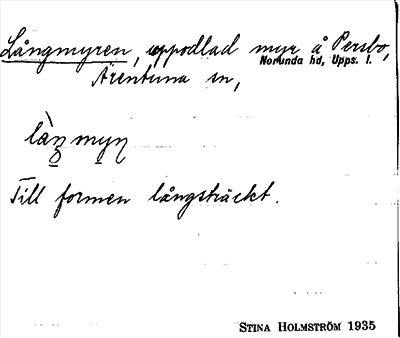 Långmyren, uppodlad myr å Persbo,
Norunda hd, Upps. l.
Ärentuna sn,
Till formen långsträckt.
STINA HOLMSTRÖM 1935